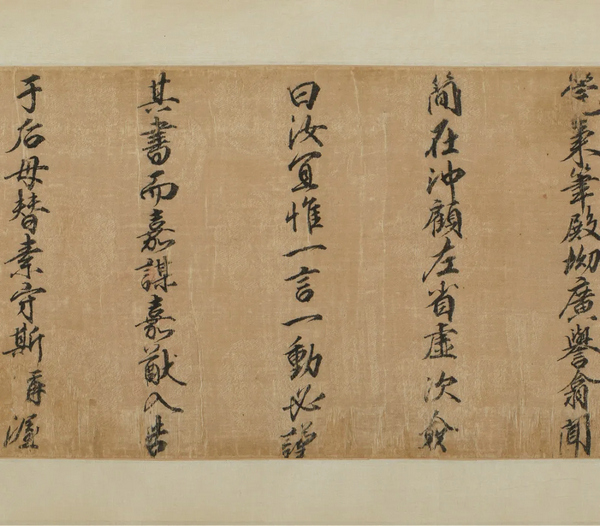 秉筆殿坳廣譽翕聞
簡在沖顧左省虛次僉
曰汝宜惟一言一動必謹
其書而嘉謀嘉猷入告
于后毋替素守斯再渥